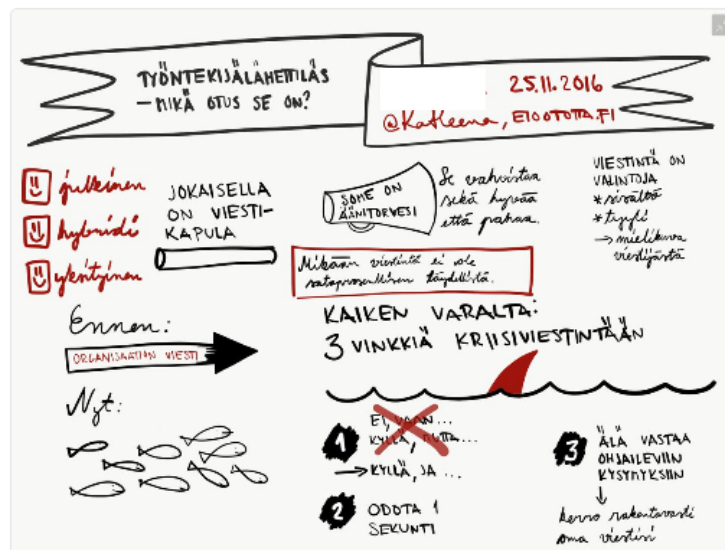 TYÖNTEKIJÄLÄHETTILÄS
– MIKÄ OTUS SE ON?
25.11.2016
@Katleena, EIOOTOTTA.FI
julkinen
hybridi
yksityinen
JOKAISELLA
ON VIESTI-
KAPULA
SOME ON
ÄÄNITORVESI
Se vahvistaa
sekä hyvää
että pahaa.
VIESTINTÄ ON
VALINTOJA
* sisältö
* tyyli
→ mielikuva
viestijästä
Mikään viestintä ei ole
sataprosenttisen täydellistä.
Ennen:
ORGANISAATION VIESTI
Nyt:
KAIKEN VARALTA:
3 VINKKIÄ KRIISIVIESTINTÄÄN
1
EI, VAAN...
KYLLÄ, MUTTA...
→ KYLLÄ, JA ...
2
ODOTA 1
SEKUNTI
3
ÄLÄ VASTAA
OHJAILEVIIN
KYSYMYKSIIN
↓
kerro rakentavasti
oma viestisi